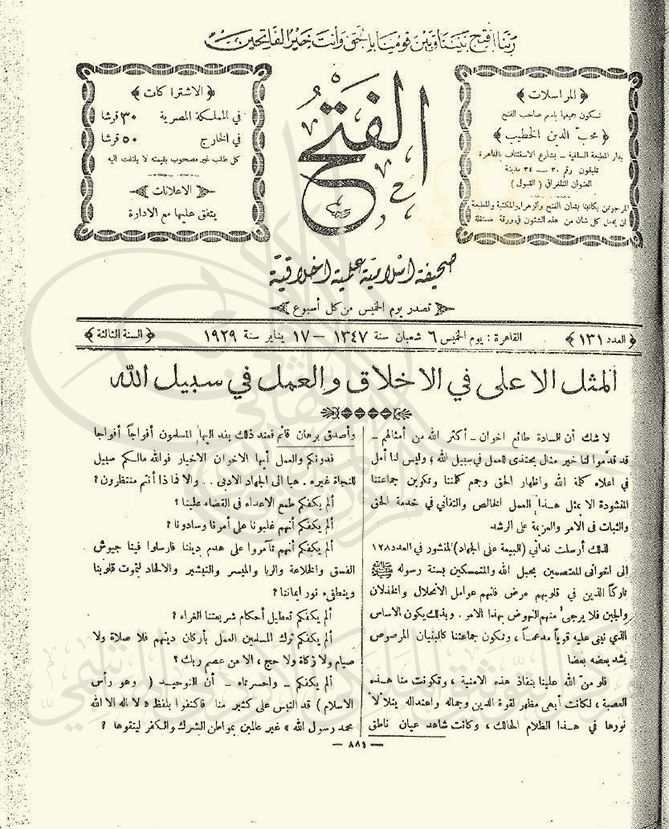 ربنا افتح بيننا وبين قومنا بالحق وأنت خير الفاتحين
﴿ المراسلات ﴾
تكون جميعها باسم صاحب الفتح
﴿ محب الدين الخطيب ﴾
بدار المطبعة السلفية ــ بشارع الاستئناف بالقاهرة
تليفون رقم ٢٠ ــ ٣٤ مدينة
العنوان التلغرافي ( القبول )
المرجو ممن يكاتبنا بشأن الفتح والزهراء والمكتبة والمطبعة
ان يجعل كل شأن من هذه الشئون في ورقة مستقلة
الفتح
﴿ الاشتراكات ﴾
في المملكة المصرية ٣٠ قرشا
في الخارج ٥٠ قرشا
كل طلب غير مصحوب بقيمته لا يلتفت اليه
﴿ الاعلانات ﴾
يتفق عليها مع الادارة
صحيفة اسلامية علمية اخلاقية
تصدر يوم الخميس من كل أسبوع
﴿ العدد ١٣١ ﴾
القاهرة : يوم الخميس ٦ شعبان سنة ١٣٤٧ ــ ١٧ يناير سنة ١٩٢٩
﴿ السنة الثالثة ﴾
المثل الاعلى في الاخلاق والعمل في سبيل الله
لا شك أن للسادة طائع اخوان ــ أكثر الله من أمثالهم ــ
قد قدّموا لنا خير مثال يحتذى للعمل في سبيل الله ؛ وليس لنا أمل
في اعلاء كلمة الله واظهار الحق وجمع كلمتنا وتكوين جماعتنا
المنشودة الا بمثل هذا العمل الخالص والتفاني في خدمة الحق
والثبات في الامر والعزيمة على الرشد
لذلك أرسلت ندائي (البيعة على الجهاد) المنشور في العدد ١٢٨
الى اخواني المعتصمين بحبل الله والمتمسكين بسنة رسوله ﷺ
تاركاً الذين في قلوبهم مرض فانهم عوامل الانحلال والخذلان
والجبن فلا يرجى منهم النهوض بهذا الامر . وبذلك يكون الاساس
الذي نبني عليه قوياً مدعماً ، وتكون جماعتنا كالبنيان المرصوص
يشد بعضه بعضا
فلو منّ الله علينا بنفاذ هذه الامنية ، وتكونت منا هذه
العصبة ، لكانت أبهى مظهر لقوة الدين وجماله واعتداله يتلألأ
نورها في هذا الظلام الحالك ، وكانت شاهد عيان ناطق
وأصدق برهان قائم فعند ذلك يفد اليها المسلمون أفواجاً أفواجا
فدونكم والعمل أيها الاخوان الاخيار فوالله مالكم سبيل
للنجاة غيره . هيا الى الجهاد الادبي .. والا فماذا أنتم منتظرون ؟
ألم يكفكم طمع الاعداء في القضاء علينا ؟
ألم يكفكم أنهم غلبونا على أمرنا وسادونا ؟
ألم يكفكم أنهم تآمروا على هدم ديننا فارسلوا فينا جيوش
الفسق والخلاعة والربا والميسر والتبشير والالحاد لتموت قلوبنا
وينطفىء نور ايماننا ؟
ألم يكفكم تعطيل أحكام شريعتنا الغراء ؟
ألم يكفكم ترك المسلمين العمل بأركان دينهم فلا صلاة ولا
صيام ولا زكاة ولا حج ، الا من عصم ربك ؟
ألم يكفكم ــ واحسرتاه ــ أن التوحيد ( وهو رأس
الاسلام ) قد التبس على كثير منا فاكتفوا بلفظ « لا اله الا الله
محمد رسول الله » غير عالمين بمواطن الشرك والكفر ليتقوها ؟
ــ ٨٨١ ــ